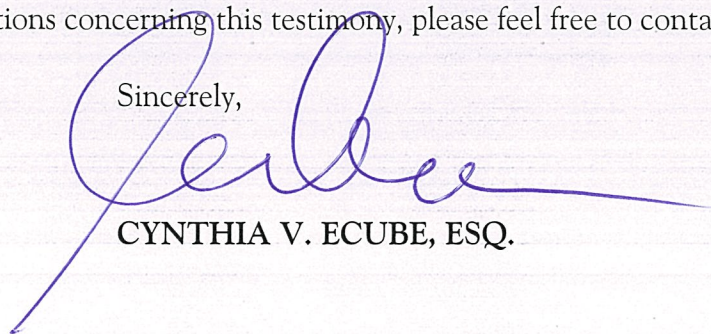 tions concerning this testimony, please feel free to conta
Sincerely,
CYNTHIA V. ECUBE, ESQ.